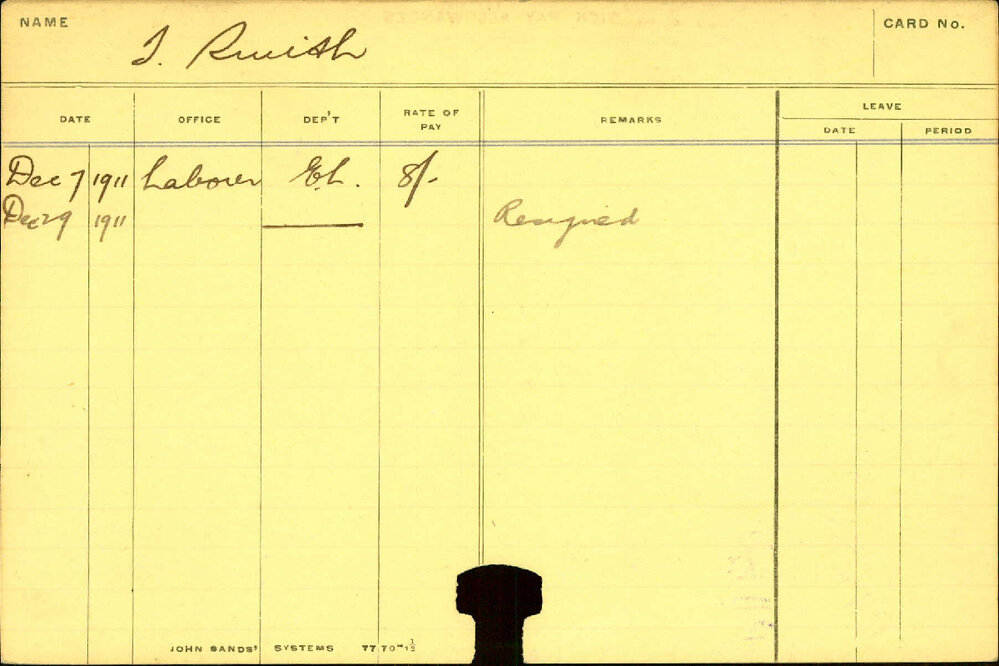 NAME
CARD No.
Smith
DATE OFFICE DEP'T RATE OF PAY REMARKS LEAVE
DATE PERIOD
Dec 7 1911 Laborer E.L. 8/-
Dec 29 1911 Resigned
JOHN SANDS' SYSTEMS